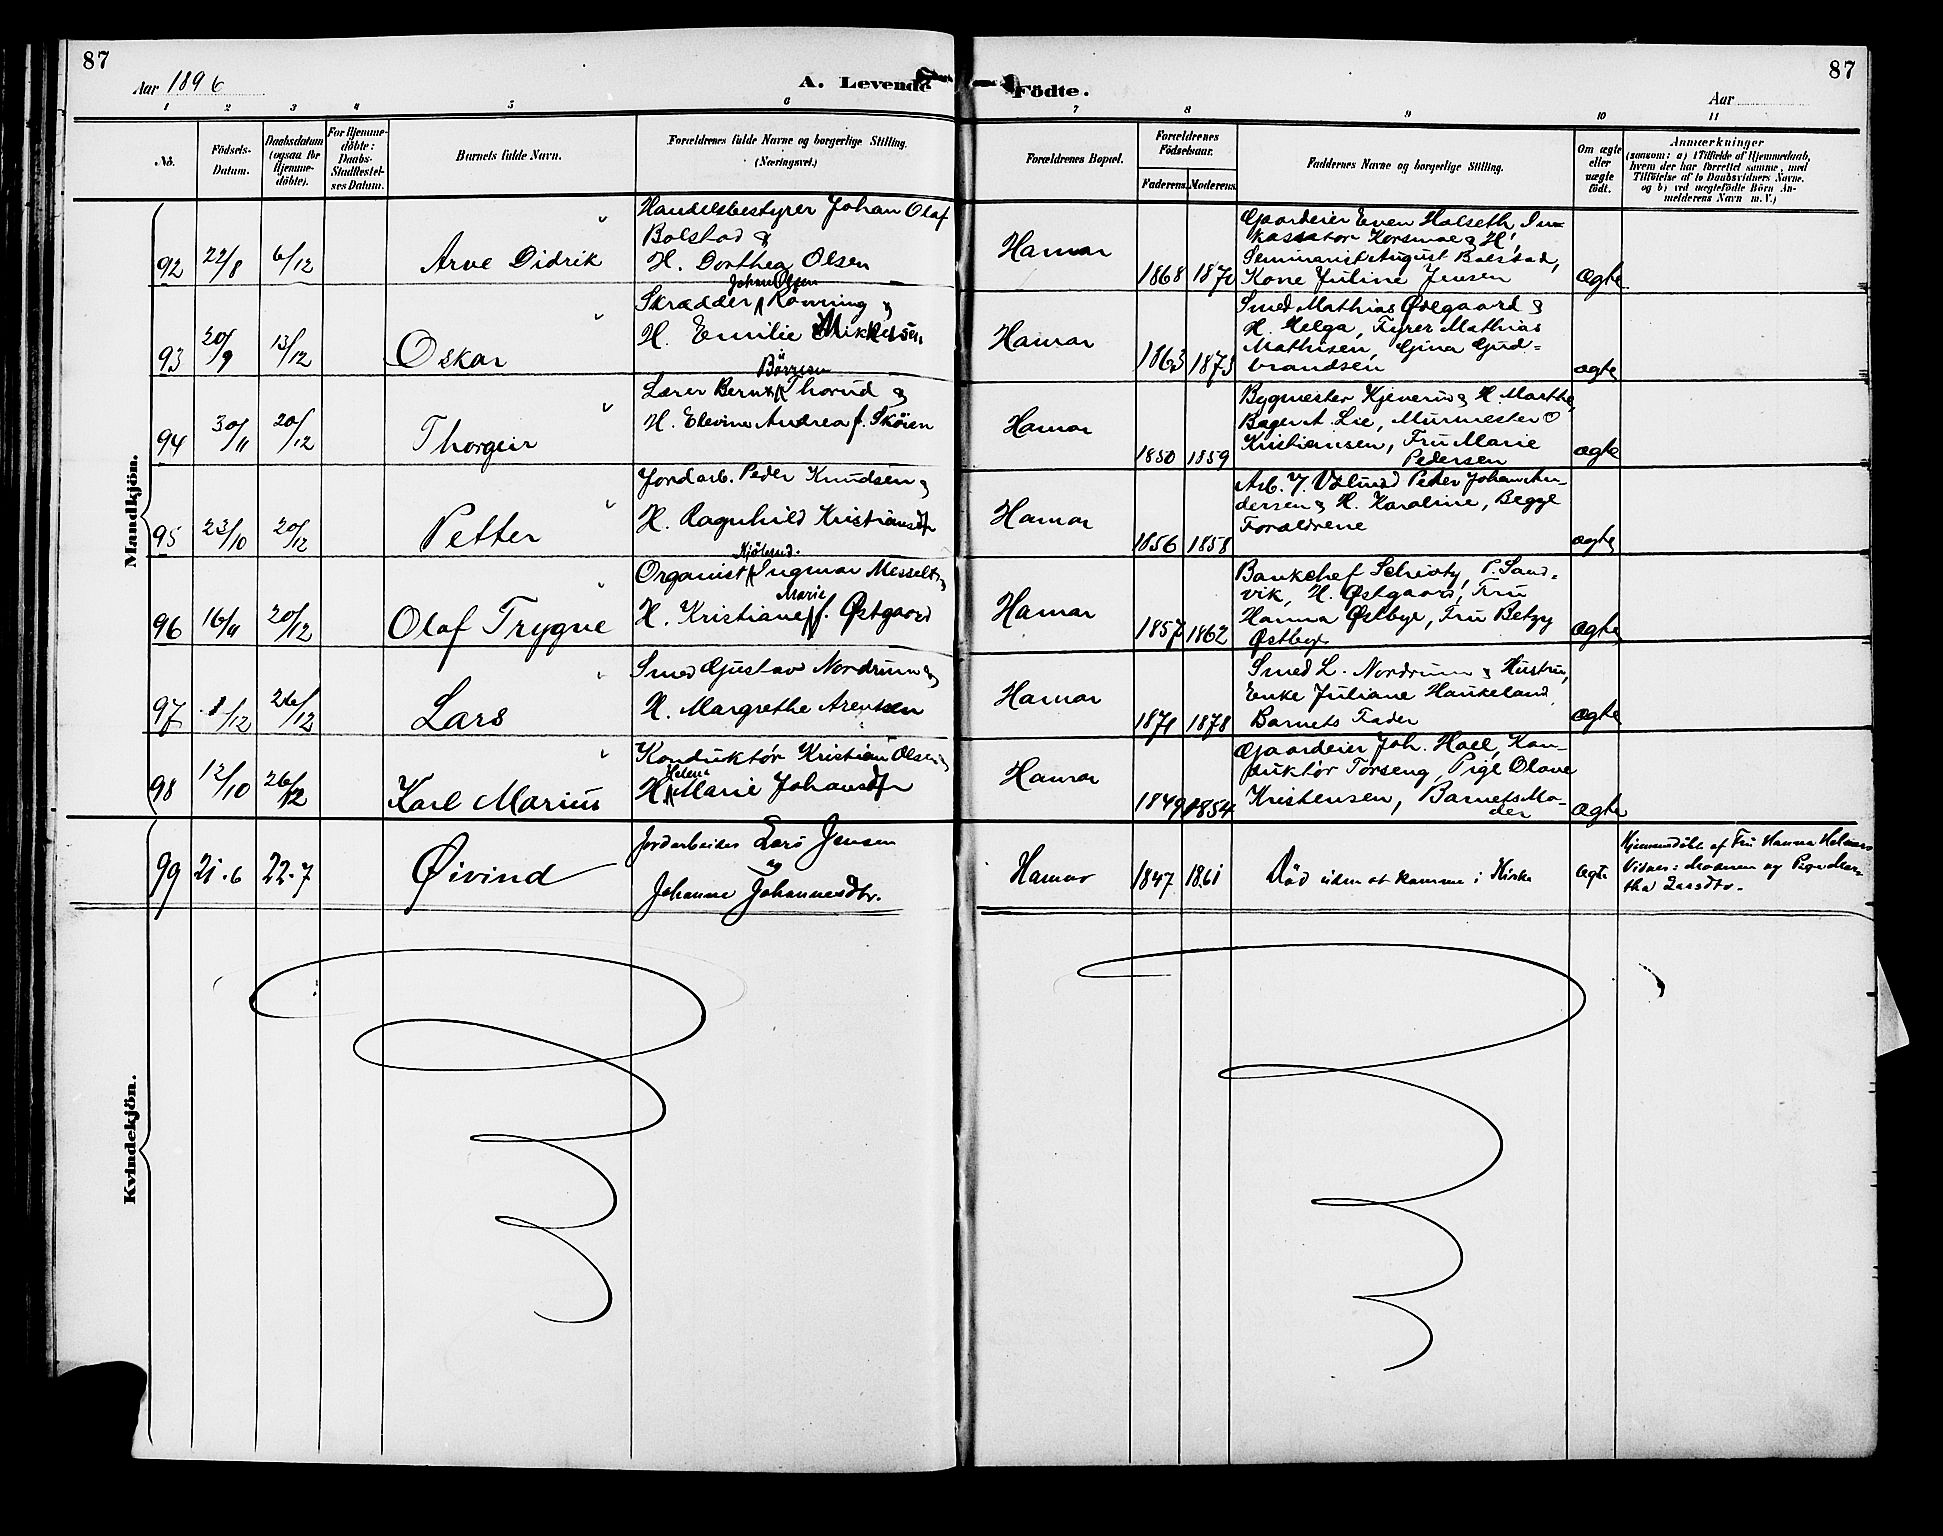 87
87
Aar 1896
A. Levende
Födte.
Aar
1 2 3 4 5 6 7 8 9 10 11
No.
Födsels-
Datum.
Daabsdatum
(ogsaa for
Hjemme-
døbte).
For Hjemme-
døbte:
Daabs-
Stadfæstel-
ses Datum.
Barnets fulde Navn.
Forældrenes fulde Navne og borgerlige Stilling.
(Næringsvei.)
Forældrenes Bopæl.
Forældrenes
Födselsaar.
Faderens.
Moderens.
Faddernes Navne og borgerlige Stilling.
Om ægte
eller
uægte
født.
Anmærkninger
(saasom: a) i Tilfælde af Hjemmedaab,
hvem der har forrettet samme, med
Tilføielse af to Daabsvidners Navne.
og b) ved uægtefødte Börn An-
melderens Navn m. V.)
Mandkjön.
92 22/8 6/12 Arve Didrik
Handelsbestyrer Johan Olaf
Bolstad &
H. Dorthea Olsen
Hamar 1868 1870
Gaardeier Even Halseth, In-
kassator Korsmoe & H,
Seminarist August Bolstad,
Kone Juline Jensen
Ægte
93 20/9 13/12 Oskar
Johan Olsen
Skrædder Rønning &
H. Emilie Mikkelsen
Hamar 1863 1873
Smed Mathias Ødegaard &
H. Helga, Fyrer Mathias
Mathisen, Gina Gud-
brandsen
ægte
94 30/11 20/12 Thorgeir
Börresen
Lærer Bernt Thorud &
H. Elevine Andrea f. Skøien
Hamar 1850 1859
Bygmester Kjeverud & H. Marthe,
Bager A. Lie, Murmester O
Kristiansen, Fru Marie
Pedersen
ægte
95 23/10 20/12 Petter
Jordarb. Peder Knudsen &
H. Ragnhild Kristiansdtr
Hamar 1856 1858
Arb. Peter Johan An-
dersen & H. Karoline, Begge
Forældrene
ægte
96 16/9 20/12 Olaf Trygve
Organist Ingmar Messelt &
Marie
H. Kristiane f. Østgaard
Hamar 1857 1862
Bankchef Schiøtz, P. Sand-
vik, H. Østgaard, Fru
Hanna Østbye, Fru Betzy
Østbye
Ægte
97 8/12 26/12 Lars
Smed Gustav Nordrum &
H. Margrethe Arentsen
Hamar 1871 1878
Smed L. Nordrum & Hustru,
Enke Juliane Haukeland,
Barnets Fader
Ægte
98 12/10 26/12 Karl Marius
Konduktør Kristian Olsen &
Helene
H. Marie Johansdtr
Hamar 1849 1854
Gaardeier Joh. Hoel, Kon-
duktør Torseng, Pige Olave
Kristensen, Barnets Mo-
der
Ægte
99 21.6 22.7 Øivind
Jordarbeider Lars Jensen
og
Johanne Johannesdtr.
Hamar 1847 1861
Død uden at komme i Kirke
ægte
Hjemmedöbt af Fru Hanna
Vidner: Moderen og Pige Mar-
tha Larsdtr.
Kvindekjön.